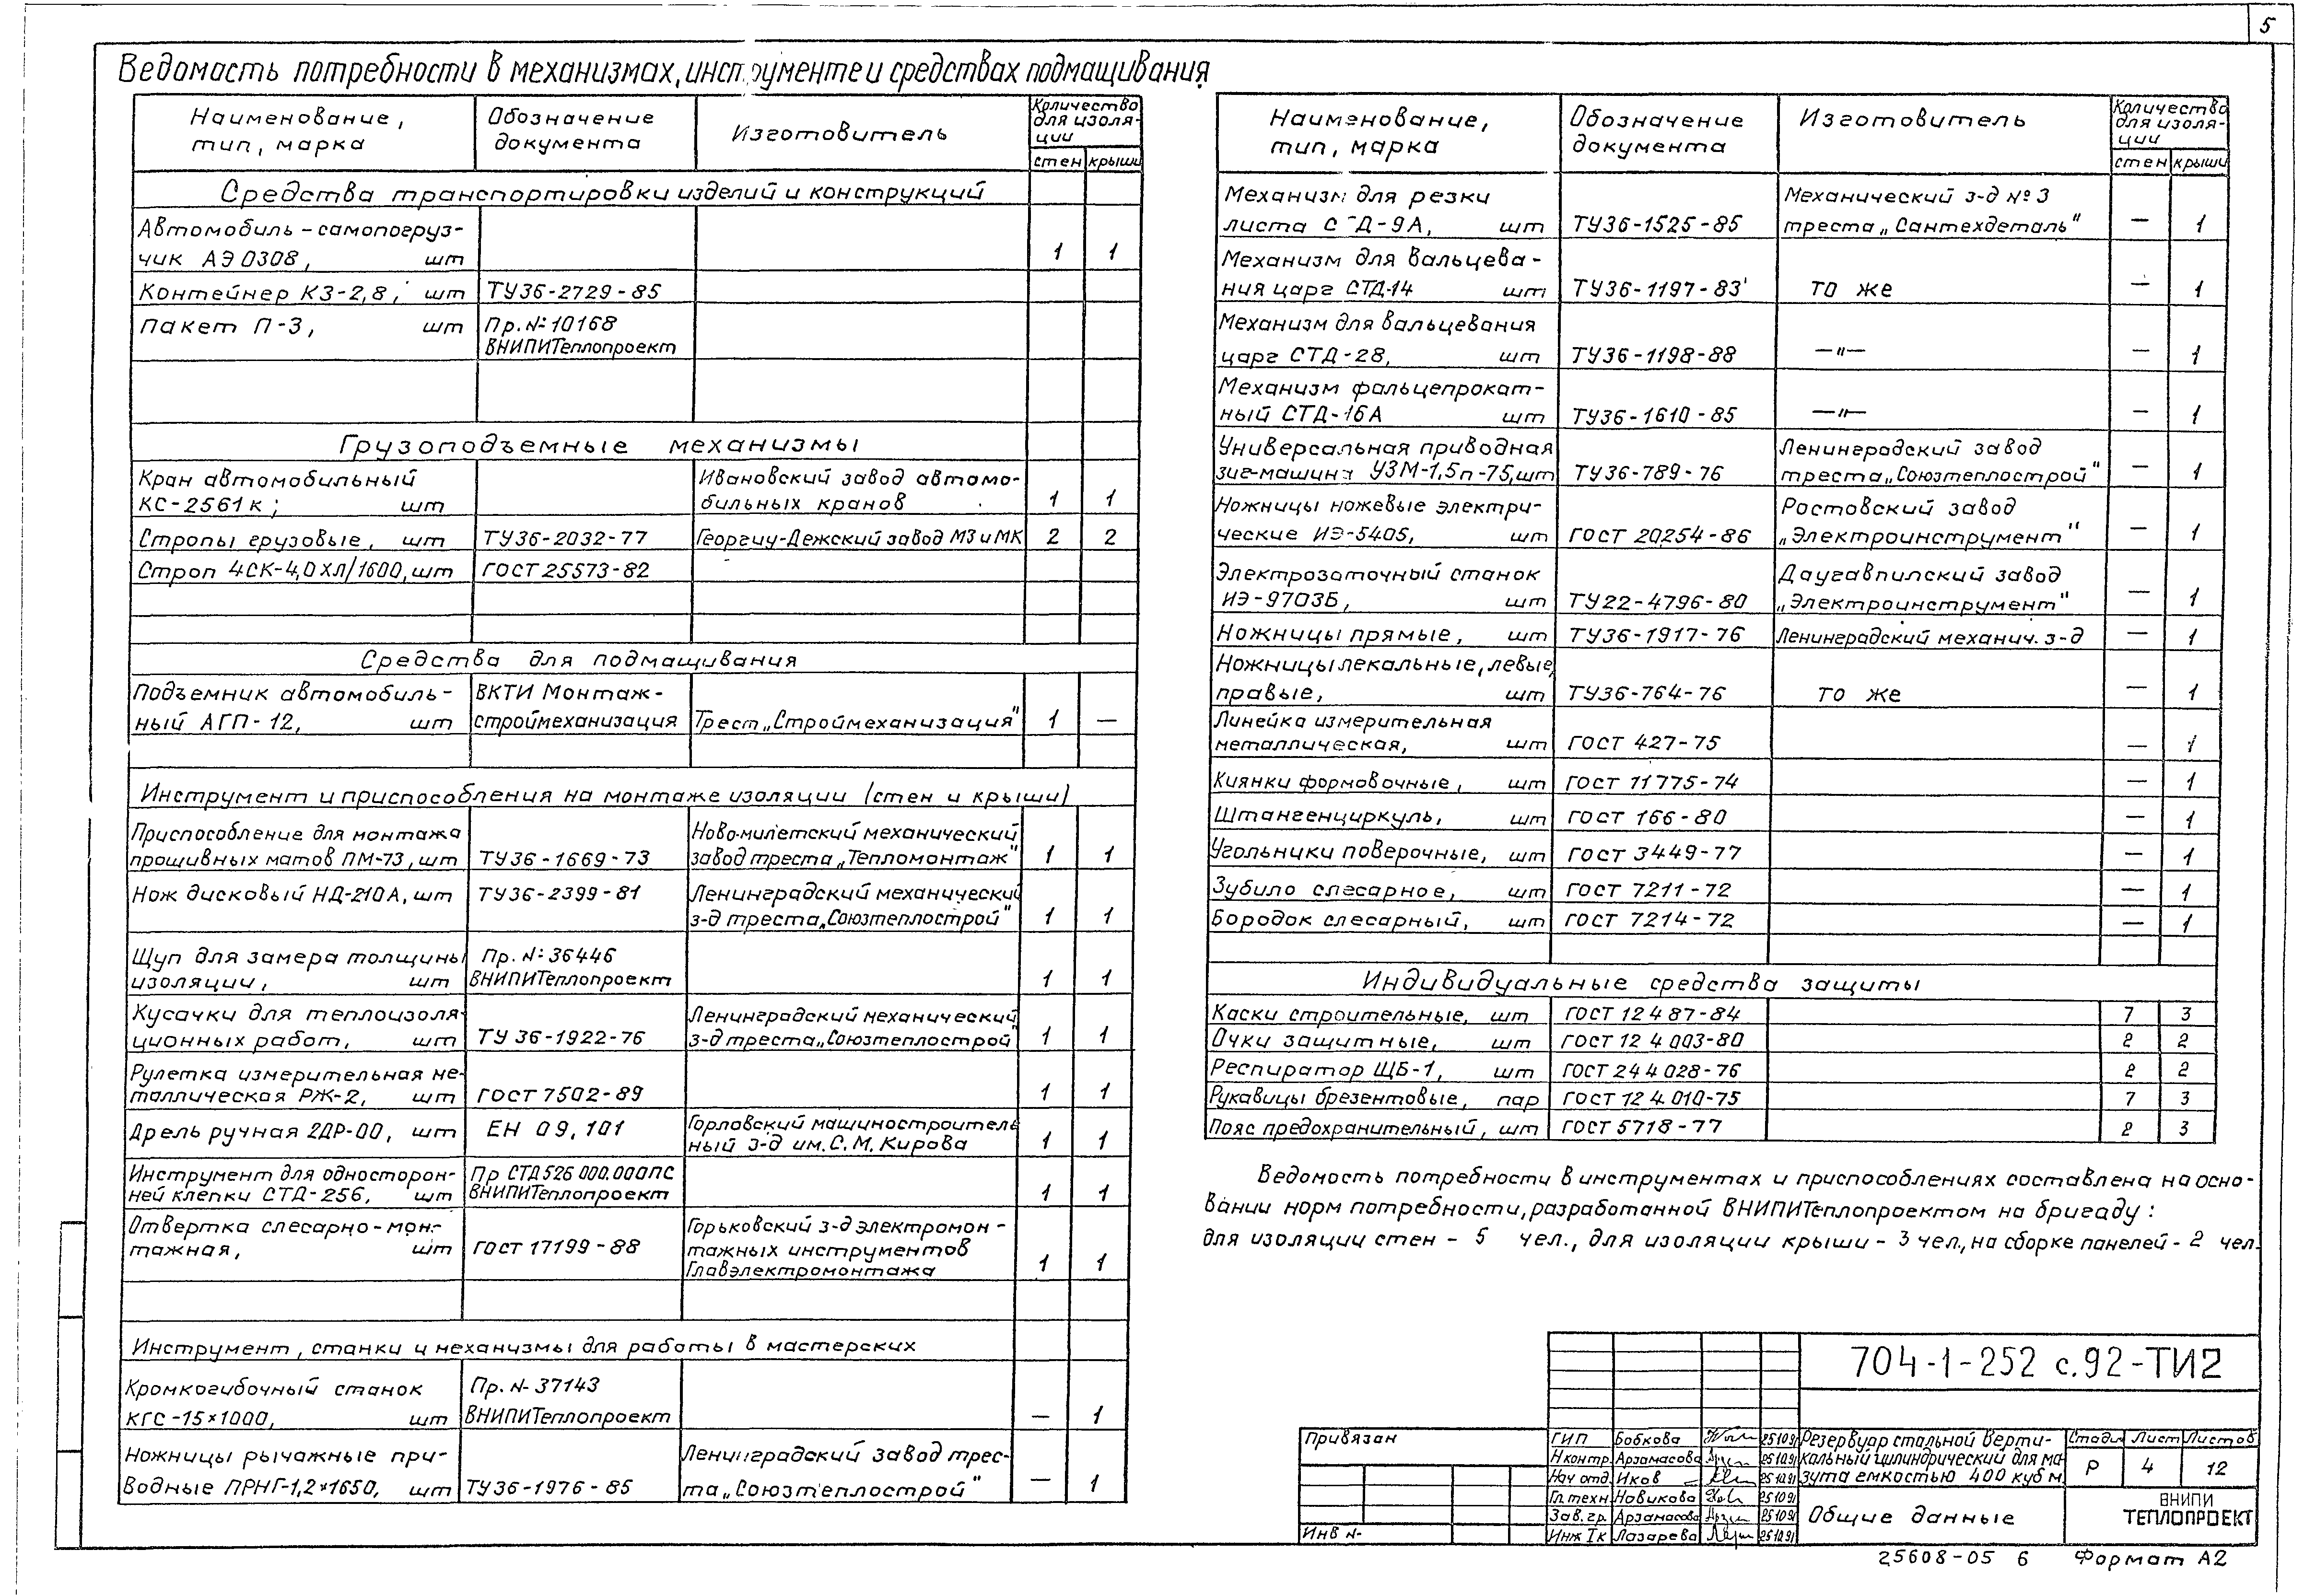 5
Ведомость потребности в механизмах, инструменте и средствах подмащивания
Наименование, тип, марка
Обозначение документа
Изготовитель
Количество для изоляции
стен крыши
Средства транспортировки изделий и конструкций
Автомобиль-самопогруз-
чик АЭ 0308, шт 1 1
Контейнер КЗ-2,8, шт ТУ36-2729-85
Пакет П-3, шт Пр. №10168
ВНИПИТеплопроект
Грузоподъемные механизмы
Кран автомобильный Ивановский завод автомо-
КС-2561к; шт бильных кранов 1 1
Стропы грузовые, шт ТУ36-2032-77 Георгиу-Дежский завод МЗ и МК 2 2
Строп 4СК-4,0ХЛ/1600, шт ГОСТ 25573-82
Средства для подмащивания
Подъемник автомобиль- ВКТИ Монтаж-
ный АГП-12, шт строймеханизация Трест „Строймеханизация" 1 —
Инструмент и приспособления на монтаже изоляции (стен и крыши)
Приспособление для монтажа Ново-милетский механический
прошивных матов ПМ-73, шт ТУ36-1669-73 завод треста „Тепломонтаж" 1 1
Нож дисковый НД-210А, шт ТУ36-2399-81 Ленинградский механический
з-д треста „Союзтеплострой" 1 1
Щуп для замера толщины Пр. №36446
изоляции, шт ВНИПИТеплопроект 1 1
Кусачки для теплоизоля- Ленинградский механический
ционных работ, шт ТУ 36-1922-76 з-д треста „Союзтеплострой" 1 1
Рулетка измерительная ме-
таллическая РЖ-2, шт ГОСТ 7502-89 1 1
Дрель ручная 2ДР-00, шт ЕН 09.101 Горловский машиностроитель
ный з-д им. С. М. Кирова 1 1
Инструмент для односторон- Пр СТД 526 000.000ПС
ней клепки СТД-256, шт ВНИПИТеплопроект 1 1
Отвертка слесарно-мон- Горьковский з-д электромон-
тажная, шт ГОСТ 17199-88 тажных инструментов
Главэлектромонтажа 1 1
Инструмент, станки и механизмы для работы в мастерских
Кромкогибочный станок Пр. N- 37143
КГС-15×1000, шт ВНИПИТеплопроект — 1
Ножницы рычажные при- Ленинградский завод трес-
водные ПРНГ-1,2×1650, шт ТУ36-1976-85 та „Союзтеплострой" — 1
Наименование, тип, марка
Обозначение документа
Изготовитель
Количество для изоляции
стен крыши
Механизм для резки Механический з-д №3
листа СТД-9А, шт ТУ36-1525-85 треста „Сантехдеталь" — 1
Механизм для вальцева-
ния царг СТД-14 шт ТУ36-1197-83 то же — 1
Механизм для вальцевания
царг СТД-28, шт ТУ36-1198-88 —"— — 1
Механизм фальцепрокат-
ный СТД-16А шт ТУ36-1610-85 —"— — 1
Универсальная приводная Ленинградский завод
зиг-машина УЗМ-1,5п-75, шт ТУ36-789-76 треста „Союзтеплострой" — 1
Ножницы ножевые электри- Ростовский завод
ческие ИЭ-5405, шт ГОСТ 20254-86 „Электроинструмент" — 1
Электрозаточный станок Даугавпилский завод
ИЭ-9703Б, шт ТУ22-4796-80 „Электроинструмент" — 1
Ножницы прямые, шт ТУ36-1917-76 Ленинградский механич. з-д — 1
Ножницы лекальные, левые,
правые, шт ТУ36-764-76 то же — 1
Линейка измерительная
металлическая, шт ГОСТ 427-75 — 1
Киянки формовочные, шт ГОСТ 11775-74 — 1
Штангенциркуль, шт ГОСТ 166-80 — 1
Угольники поверочные, шт ГОСТ 3449-77 — 1
Зубило слесарное, шт ГОСТ 7211-72 — 1
Бородок слесарный, шт ГОСТ 7214-72 — 1
Индивидуальные средства защиты
Каски строительные, шт ГОСТ 12 4 87-84 7 3
Очки защитные, шт ГОСТ 12 4 003-80 2 2
Респиратор ЩБ-1, шт ГОСТ 24 4 028-76 2 2
Рукавицы брезентовые, пар ГОСТ 12 4 010-75 7 3
Пояс предохранительный, шт ГОСТ 5718-77 2 3
Ведомость потребности в инструментах и приспособлениях составлена на осно-
вании норм потребности, разработанной ВНИПИТеплопроектом на бригаду:
для изоляции стен - 5 чел., для изоляции крыши - 3 чел., на сборке панелей - 2 чел.
704-1-252 с.92-ТИ2
Привязан
Инв N-
ГИП Бобкова 25.10.91
Н контр Арзамасова 25.10.91
Нач отд. Иков 25.10.91
Гл. техн Новикова 25.10.91
Зав. гр. Арзамасова 25.10.91
Инж Iк Лазарева 25.10.91
Резервуар стальной верти-
кальный цилиндрический для ма
зута емкостью 400 куб м.
Стадия Лист Листов
Р 4 12
Общие данные
ВНИПИ
ТЕПЛОПРОЕКТ
25608-05 6 Формат А2